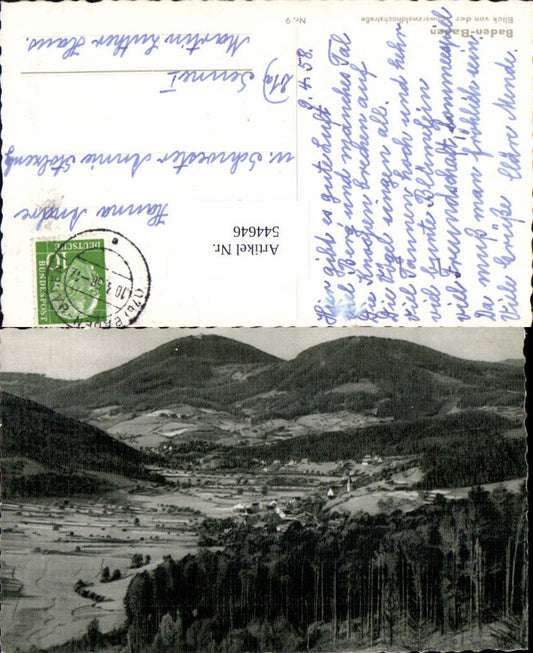 Baden-Baden
Blick von der Schwarzwaldhochstraße
Nr. 9
9.4.58.
Hier gibt es gute Luft
viel Berg und manches Tal
Die Knospen brechen auf
Die Vögel singen all.
viel Tannen hoch und hehr
viel bunte Blümelein
viel Freundschaft, Sonnenschein
Da muß man fröhlich sein.
Viele Grüße
Hanna Andre
u. Schwester Annie
Senne I
Martin Luther Haus.
DEUTSCHE
BUNDESPOST
10
BADEN
10.4.58
Artikel Nr.
544646